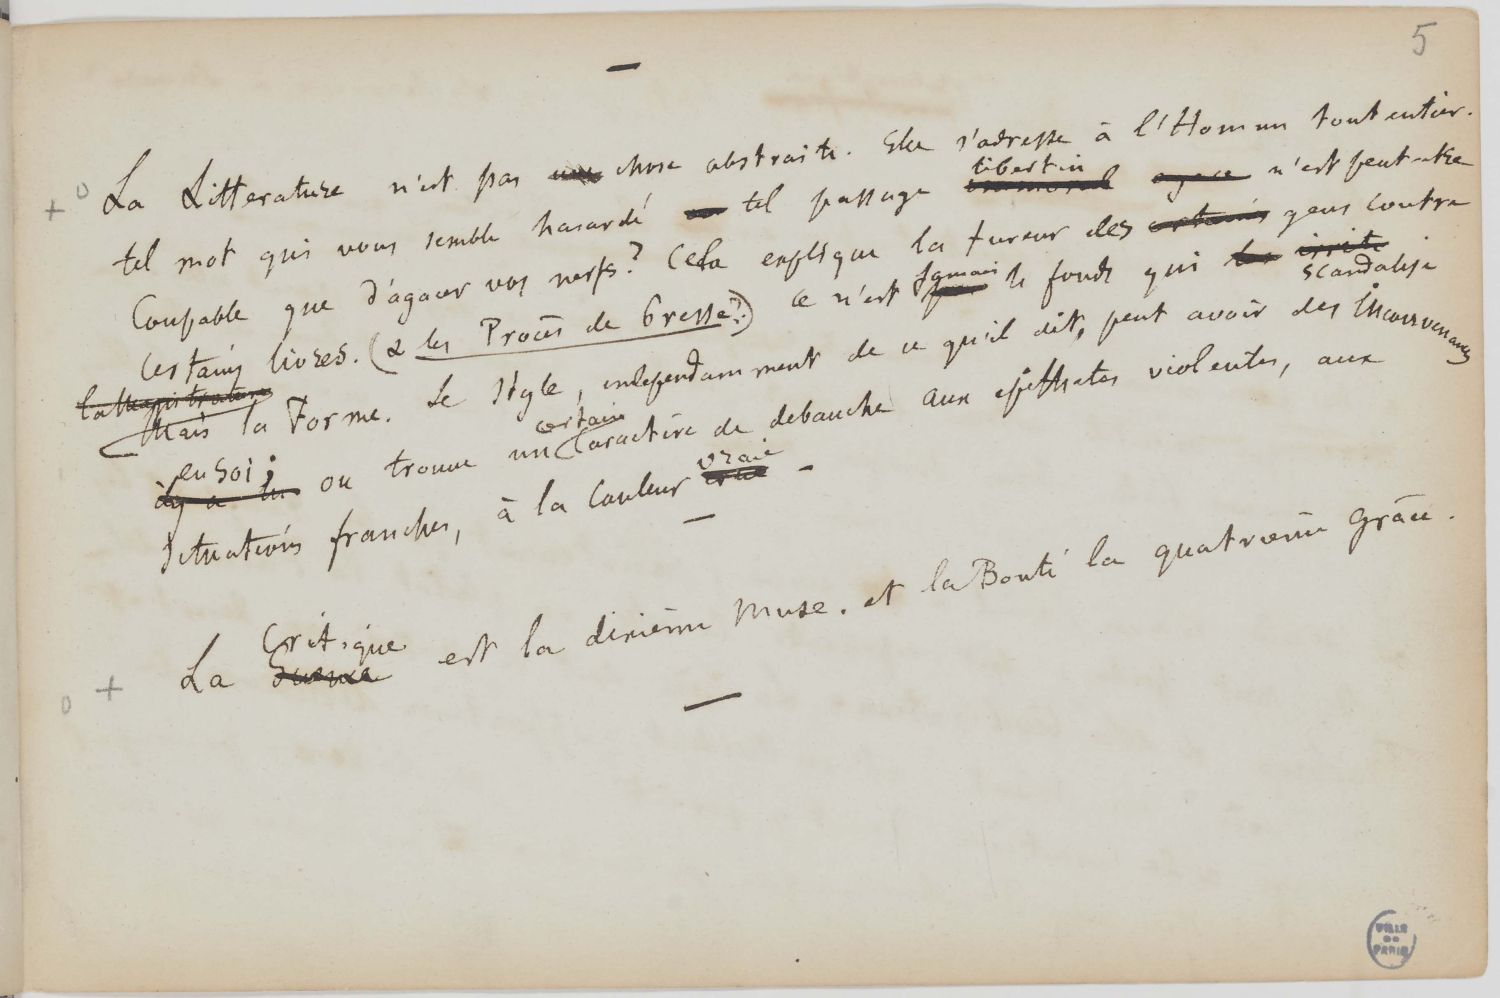 5
La Litterature n'est pas une chose abstraite. Elle s'adresse à l'Homme tout entier.
tel mot qui vous semble hasardé ou tel passage immoral libertin agace n'est peut-etre
Coupable que d'agacer vos nerfs? Cela explique la fureur des certains gens contre
certains livres. (& les Procès de Presse?) Ce n'est pas jamais le fonds qui les irrite scandalise
la Magistrature Mais la Forme. Le Style, independamment de ce qu'il dit, peut avoir des Inconvenances
en soi; ou trouve un certain Caractère de debauche aux epithetes violentes, aux
Situations franches, à la Couleur crue vraie.
La Science Critique est la dixième Muse. et la Bonté la quatrieme Grâce.
VILLE
DE
PARIS